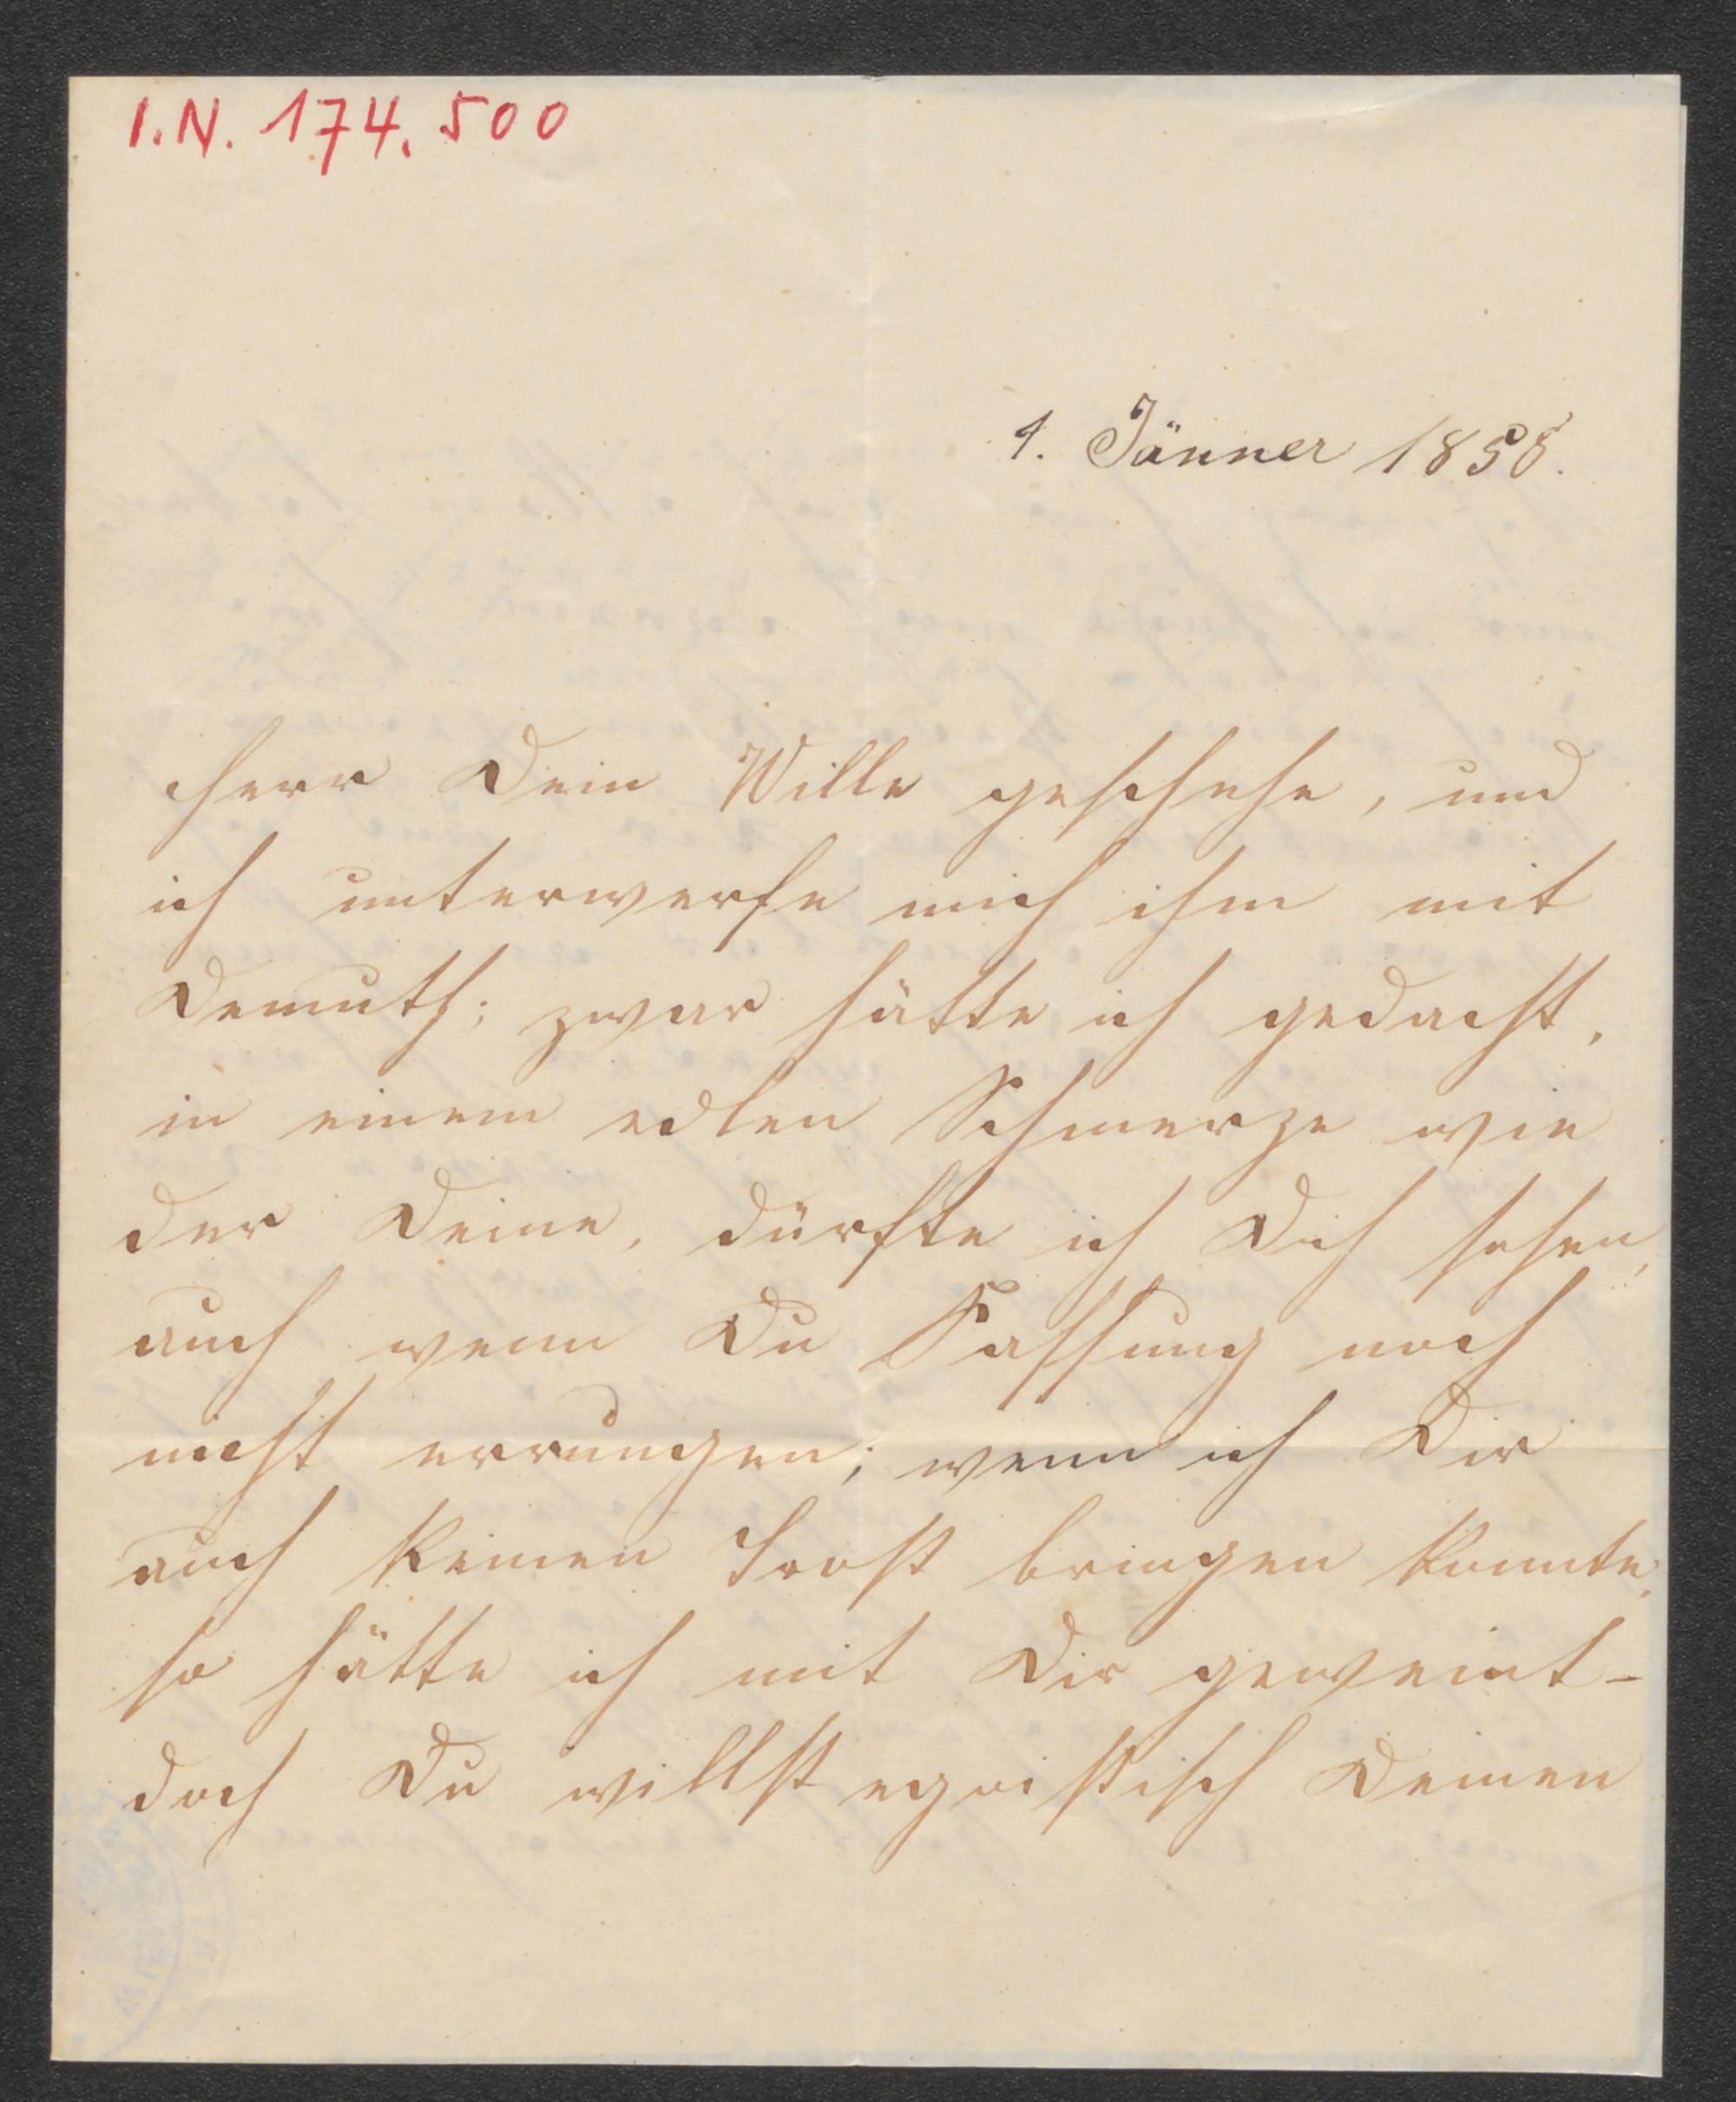 I.N. 174.500
1. Jänner 1858.
Herr Dein Wille geschehe, und
ich unterwerfe mich ihm mit
Demuth; zwar hätte ich gedacht,
in einem edlen Schmerze wie
der Deine, dürfte ich Dich sehen,
auch wenn Du Fassung noch
nicht errungen; wenn ich Dir
auch keinen Trost bringen konnte,
so hätte ich mit Dir geweint –
doch Du willst egoistisch Deinen